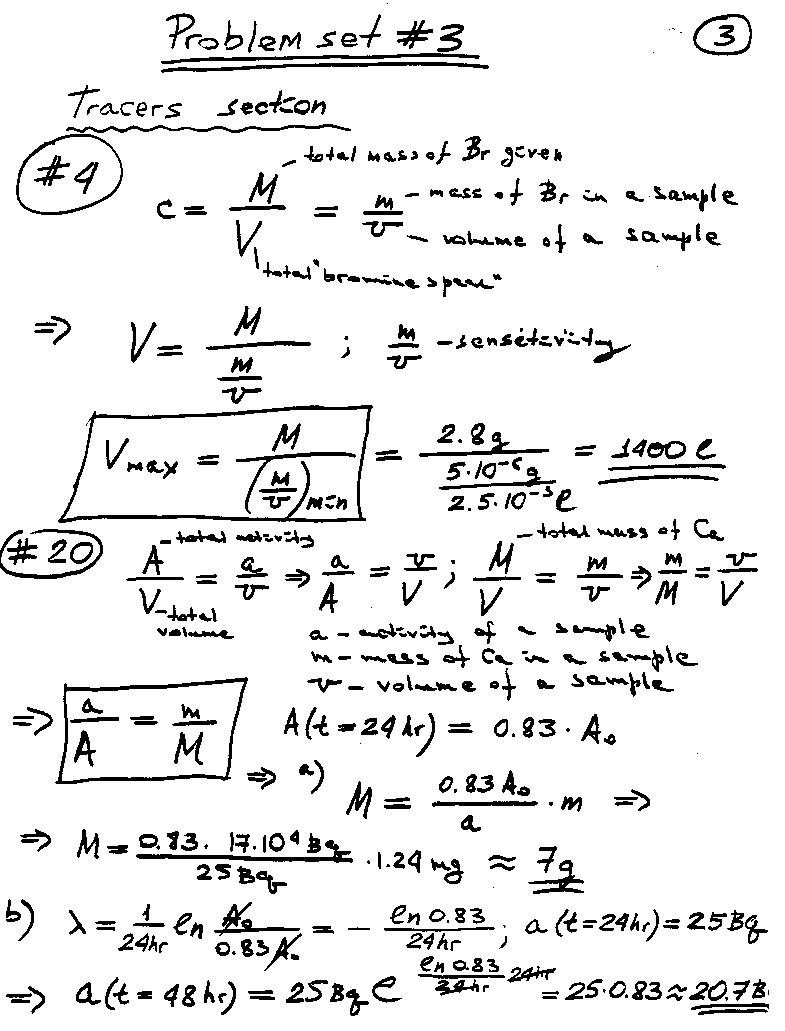 Problem set #3
3
Tracers section
#4
C = M/V = m/v
total mass of Br given
mass of Br in a sample
volume of a sample
total "bromine space"
⇒ V = M/(m/v) ; m/v – sensitivity
V max = M/(m/v)min = 2.8g/(5·10⁻⁶g/2.5·10⁻³ℓ) = 1400 ℓ
#20
A – total activity
V – total volume
A/V = a/v ⇒ a/A = v/V ; M/V = m/v ⇒ m/M = v/V
total mass of Ca
a – activity of a sample
m – mass of Ca in a sample
v – volume of a sample
⇒ a/A = m/M A(t=24hr) = 0.83 · A₀
⇒ a) M = 0.83 A₀/a · m ⇒
⇒ M = 0.83 · 17·10⁴ Bq/25 Bq · 1.24 mg ≈ 7g
b) λ = 1/24hr ln A₀/0.83A₀ = – ln 0.83/24hr ; a (t=24hr) = 25Bq
⇒ a(t = 48 hr) = 25Bq e^(ln 0.83/24hr · 24hr) = 25·0.83 ≈ 20.7B